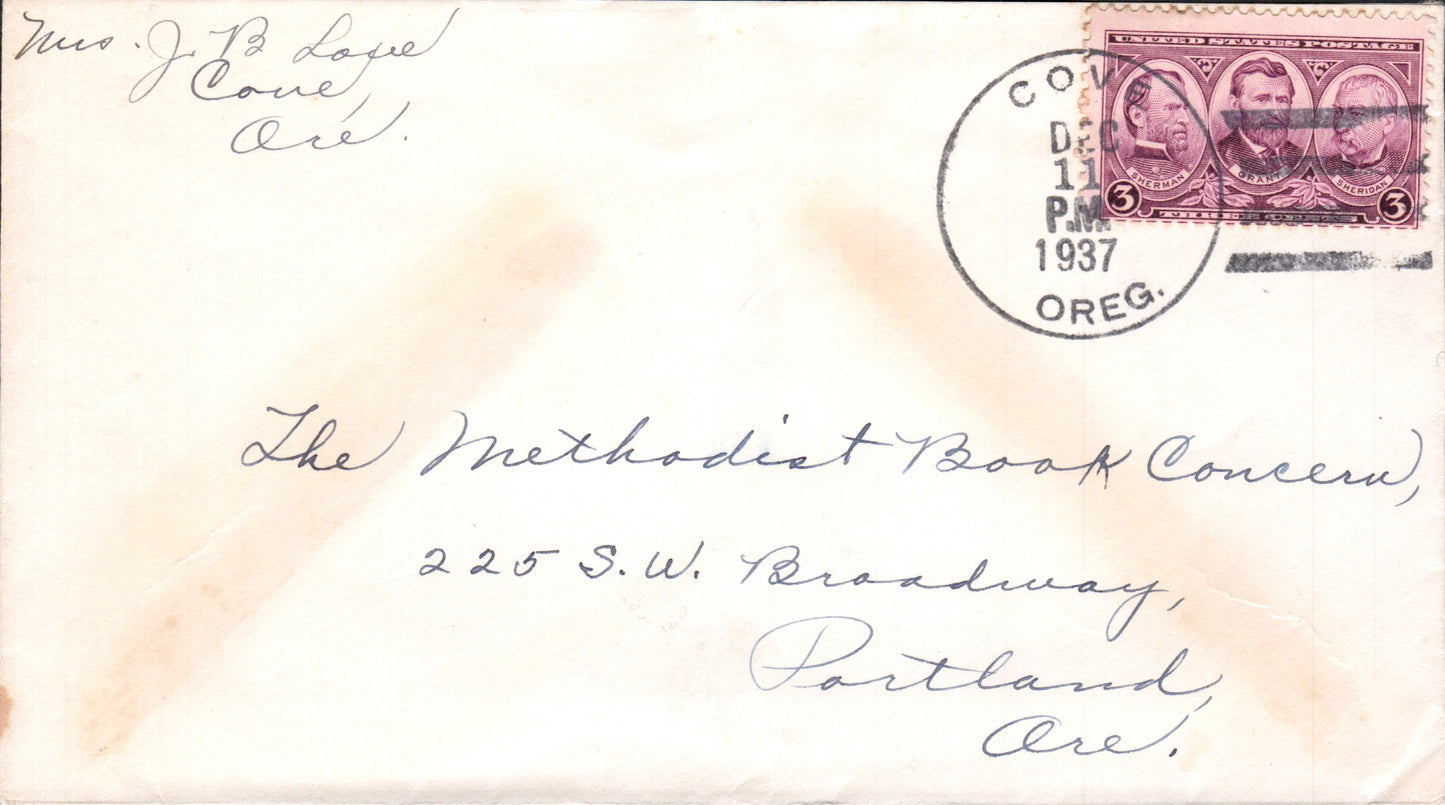 Mrs. J. B. Love
Cove,
Ore.
COVE
DEC
11
P.M.
1937
OREG.
UNITED STATES POSTAGE
SHERMAN GRANT SHERIDAN
3 THREE CENTS 3
The Methodist Book Concern,
225 S.W. Broadway,
Portland,
Ore.